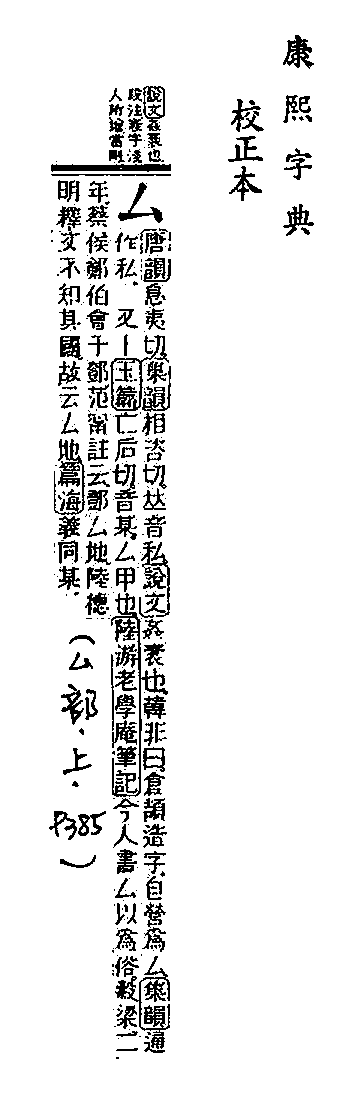 康熙字典
校正本
說文姦衺也
段注衺字淺
人所增當刪
厶
唐韻息夷切集韻相咨切𠀤音私說文姦衺也韓非曰倉頡造字自營爲厶集韻通
作私、又丨玉篇亡后切音某厶甲也陸游老學庵筆記今人書厶以爲俗穀梁二
年蔡侯鄭伯會于鄧范甯註云鄧厶地陸德
明釋文不知其國故云厶地篇海義同某、
（厶部·上·P385）